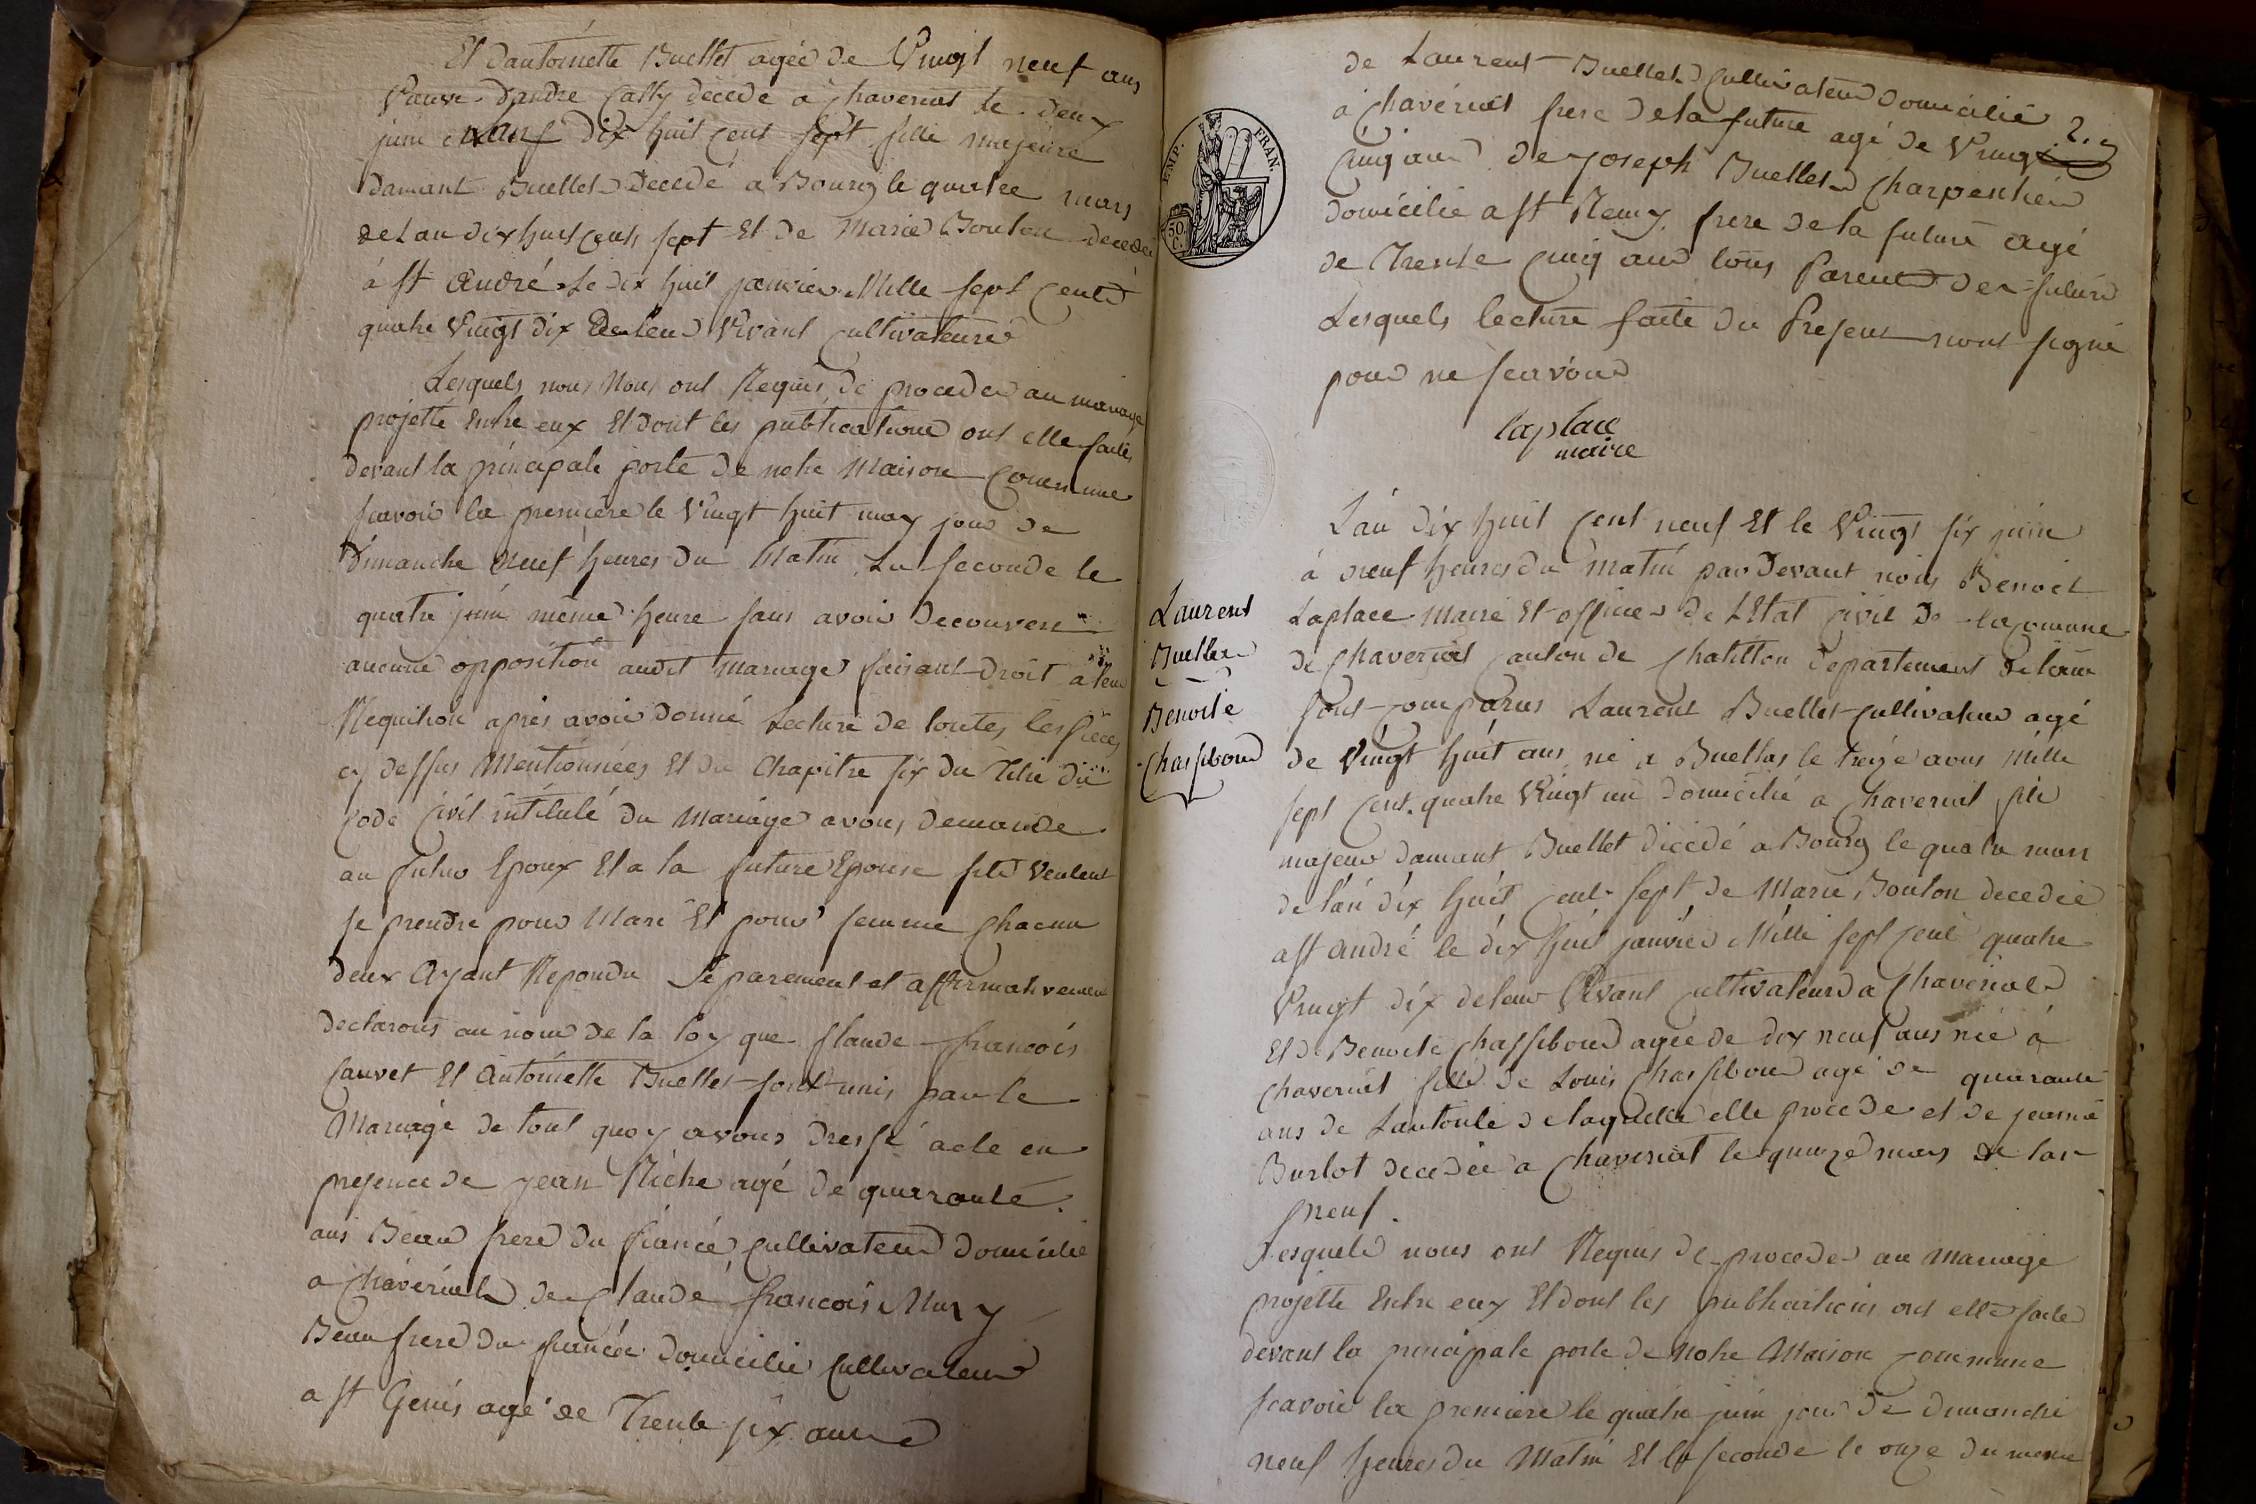 Et dantoinette Buellet agée de Vingt neuf ans
Veuve dandre Cally décédé a Chaveriat le deux
juin dix huit cent sept fille majeure
damant Buellet Decedé a Bourg le quatre mars
de Lan dix huit cents sept Et de Marie Bouton decedée
à st André Le dix huit janvier Mille sept Cents
quatre Vingt dix De leur Vivant Cultivateurs
Lesquels nous Nous ont Requis de proceder au mariage
projetté Entre eux Et Dont les publications ont etté faites
devant la principale porte de notre Maison Commune
scavoir la premiere le Vingt huit may jour de
Dimanche Neuf heures du Matin La Seconde le
quatre juin même heure sans avoir Decouvert
aucune opposition audit mariage faisant Droit a leur
Requition après avoir donné Lecture de toutes les pieces
cy dessus Mentionnées Et du Chapitre six du Titre du
Code Civil intitulé du Mariage avons demande
au futur Epoux Et a la future Epouse sils Veulent
se prendre pour Mari Et pour femme Chacun
deux Ayant Repondu Separement et affirmativement
declarons au nom de la loy que Claude françois
Cauvet Et Antoinette Buellet sont unis par le
Mariage de tout quoy avons dressé acte en
presence de jean Riche agé de quarante
ans Beau frere du fiancé Cultivateur domicilié
a Chaveriat de Claude françois Mury
Beau frere du fiancée domicilié Cultivateur
a st Genis agé de Trente six ans
2.9
de Laurent Buellet Cultivateur domicilié
à Chavériat frere de la future agé de Vingt
Cinq ans de joseph Buellet Charpentier
domicilié a st Remy frere de la future agé
de Trente Cinq ans tous Parents des futurs
Lesquels lecture faite du Present nont signé
pour ne scavoir
laplace
maire
EMP. FRAN.
50. C.
Laurent
Buellet
Benoite
Chassibour
Lan dix huit Cent neuf Et le Vingt six juin
à neuf heures du matin par Devant nous Benoit
Laplace Maire Et officier de LEtat Civil De la Commune
de Chaveriat Canton de Chatillon departement de lain
sont comparus Laurent Buellet Cultivateur agé
de Vingt huit ans né a Buellas le treize aous Mille
sept Cent quatre Vingt un Domicilié a Chaveriat fils
majeur damant Buellet décédé a Bourg le quatre mars
de lan dix huit Cent sept de Marie Bouton decedée
a st andré le dix huit janvier Mille sept Cent quatre
Vingt dix de leur Vivant Cultivateurs a Chaveriat
Et de Benoite Chassibour agée de dix neuf ans née à
Chaveriat fille de Louis Chassibour agé de quarante
ans de Lautorité de laquelle elle procede et de jeanne
Burlot decedée a Chaveriat le quinze mars de lan
neuf.
Lesquels nous ont Requis de proceder au mariage
projetté Entre eux Et dont les publications ont etté faites
devant la principale porte de Notre Maison commune
scavoir la premiere le quatre juin jour de dimanche
neuf heures du Matin Et la seconde le onze du meme